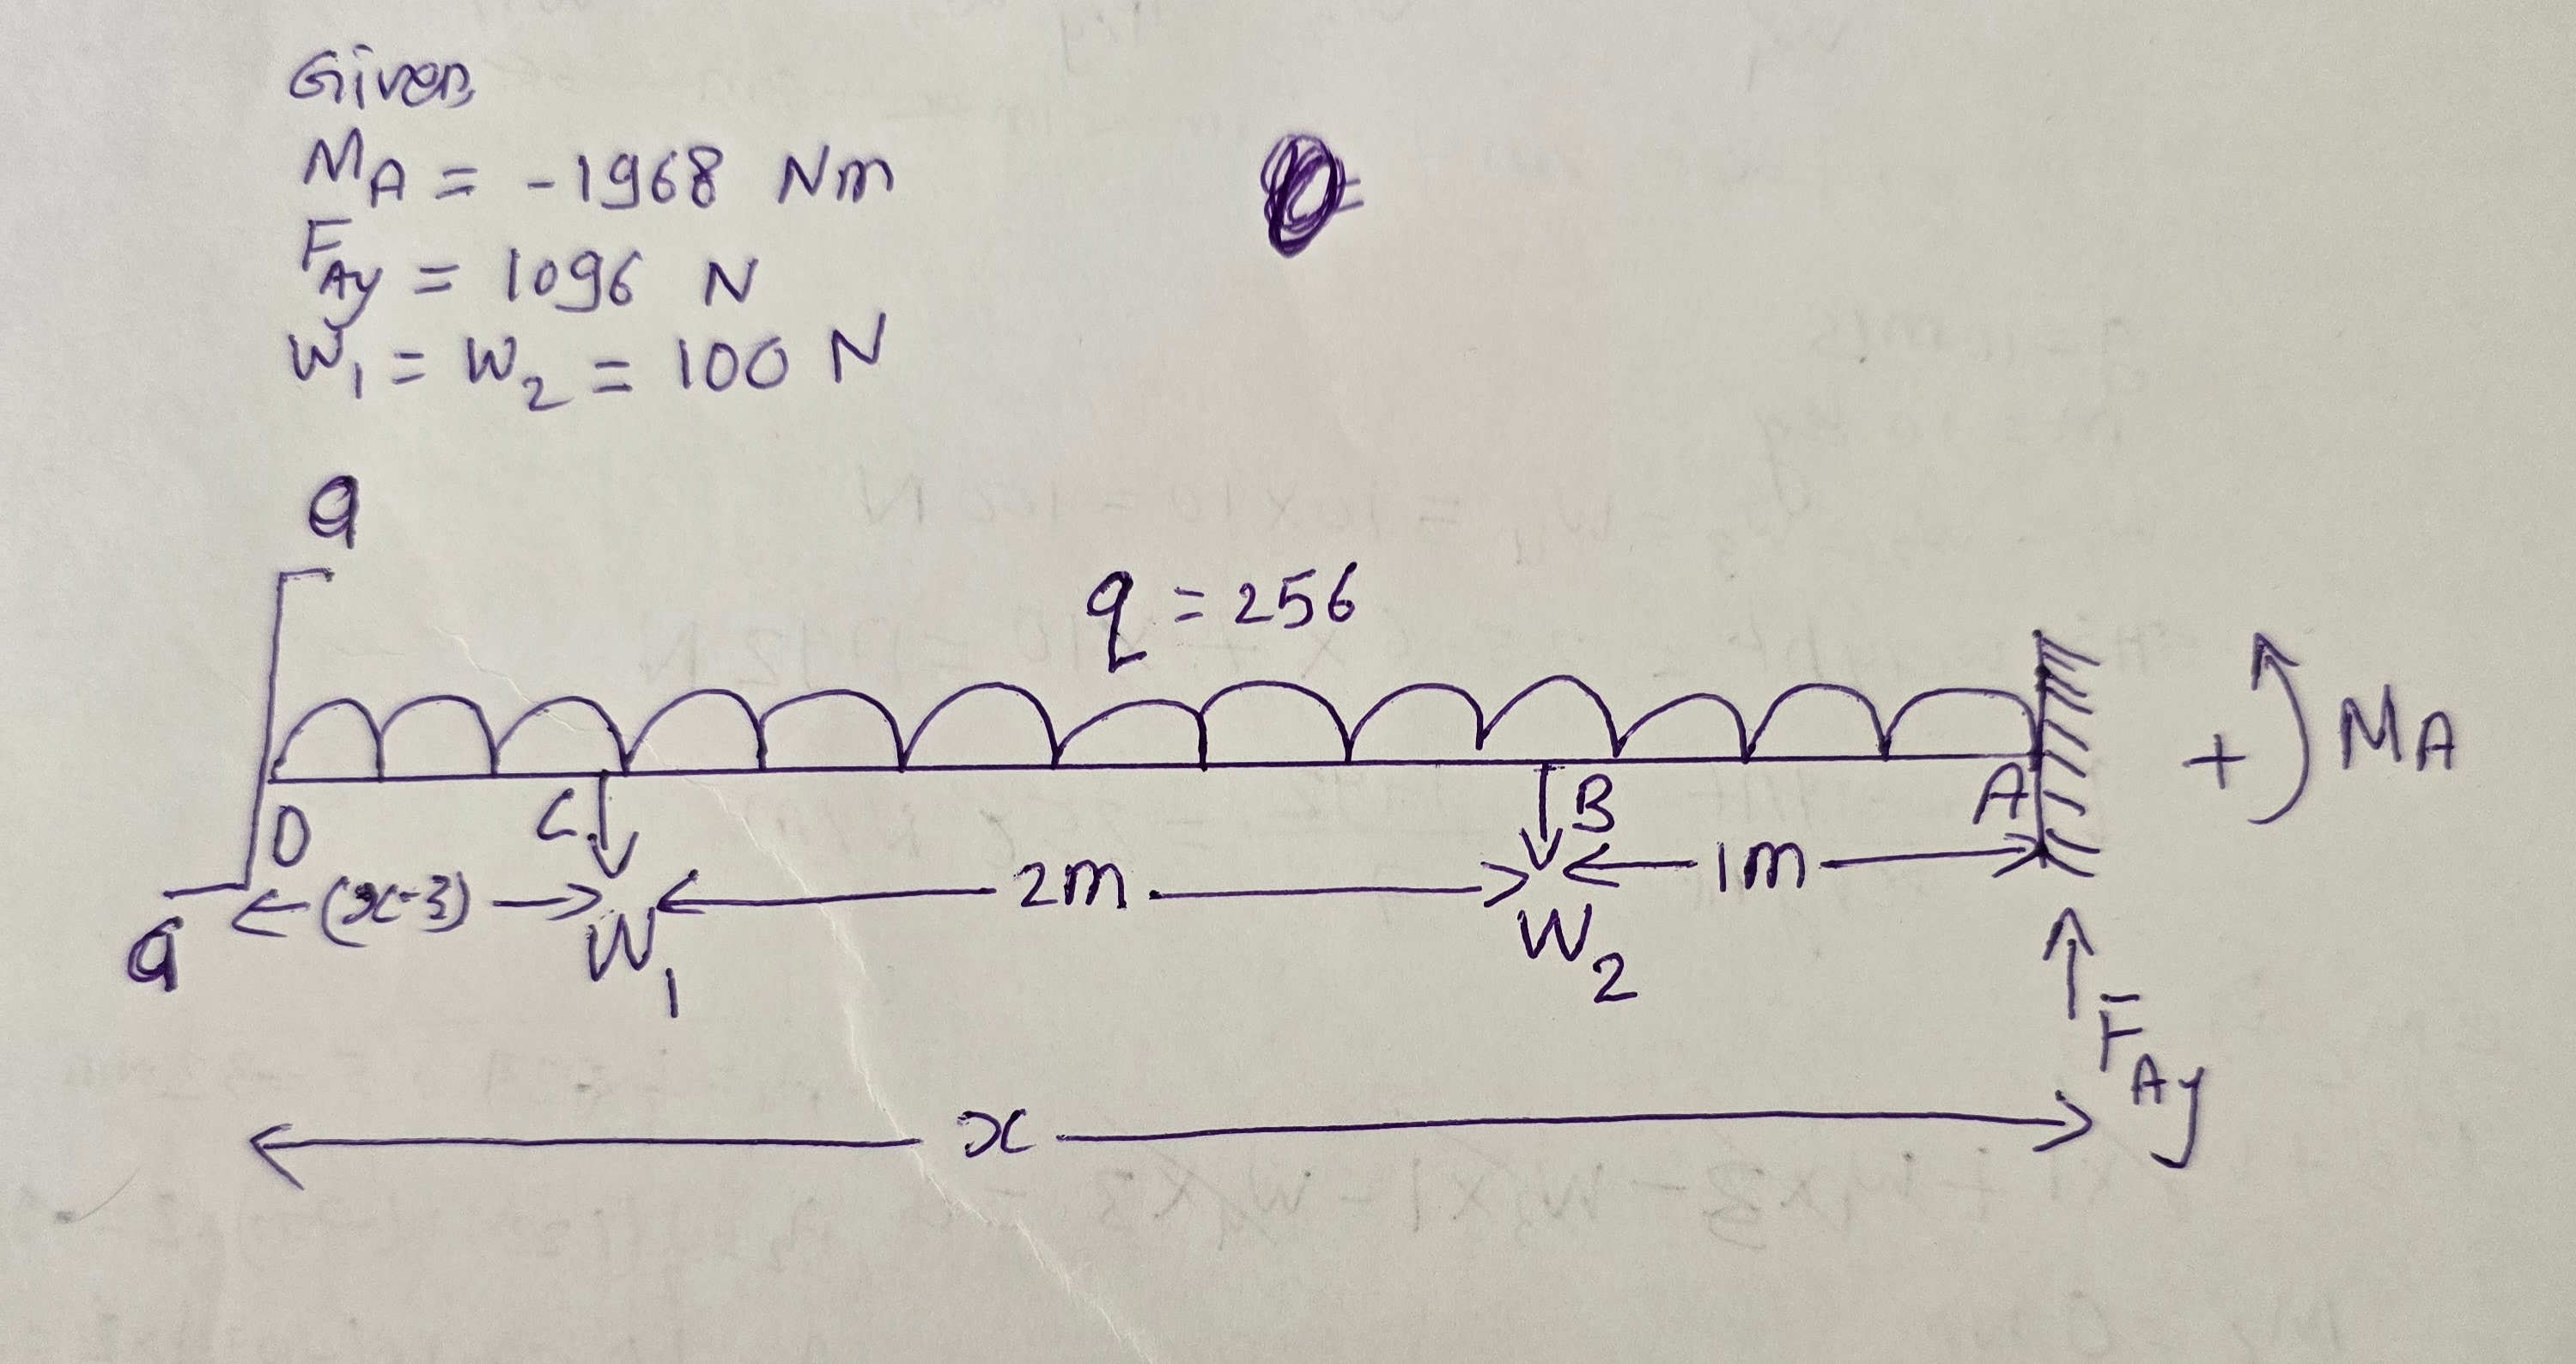 Given
M_A = -1968 Nm
F_Ay = 1096 N
W_1 = W_2 = 100 N
a
q = 256
D C B A + M_A
(x-3) 2m 1m
a W_1 W_2 F_Ay
x